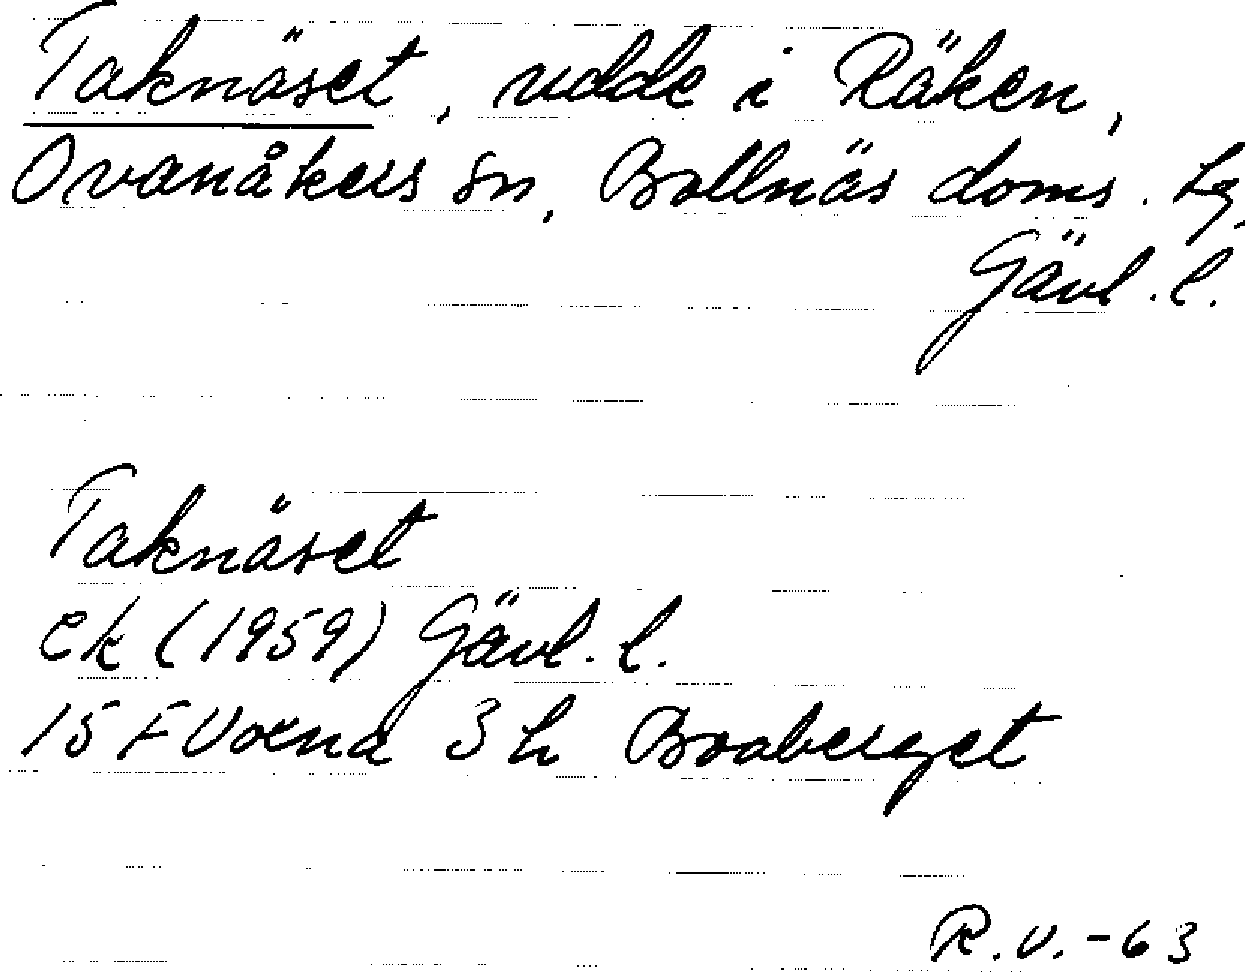 Taknäset, udde i Räken,
Ovanåkers sn, Bollnäs doms. Lg,
Gävl. l.
Taknäset
ek (1959) Gävl. l.
15 F Voxna 3 h Broberget
R.V. -63